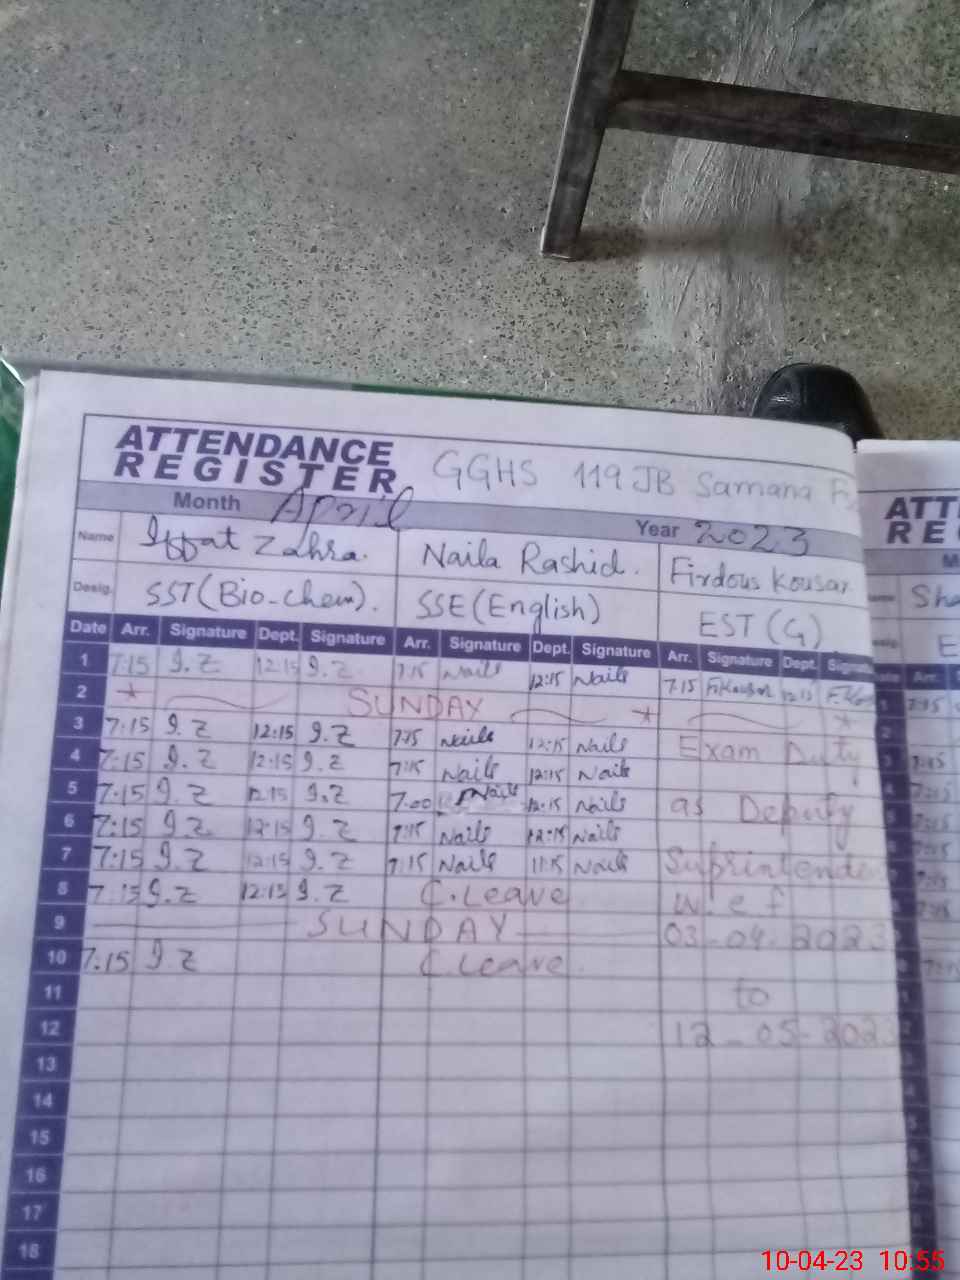 ATTENDANCE
REGISTER GGHS 119 JB Samana
Month April Year 2023
Name Iffat Zahra. Naila Rashid. Firdous Kousar
Desig. SST (Bio-Chem). SSE (English) EST (G)
Date Arr. Signature Dept. Signature Arr. Signature Dept. Signature Arr. Signature Dept. Signature
1 7:15 I.Z 12:15 I.Z 7:15 Naila 12:15 Naila 7:15 F.Kousar 12:15
2 SUNDAY
3 7:15 I.Z 12:15 I.Z 7:15 Naila 12:15 Naila Exam Duty
4 7:15 I.Z 12:15 I.Z 7:15 Naila 12:15 Naila
5 7:15 I.Z 12:15 I.Z 7:00 Naila 12:15 Naila as Deputy
6 7:15 I.Z 12:15 I.Z 7:15 Naila 12:15 Naila
7 7:15 I.Z 12:15 I.Z 7:15 Naila 11:15 Naila Suprintende
8 7:15 I.Z 12:15 I.Z C.Leave w.e.f
9 SUNDAY 03-04-2023
10 7:15 I.Z C.Leave
11 to
12 12-05-2023
13
14
15
16
17
18
10-04-23 10:55